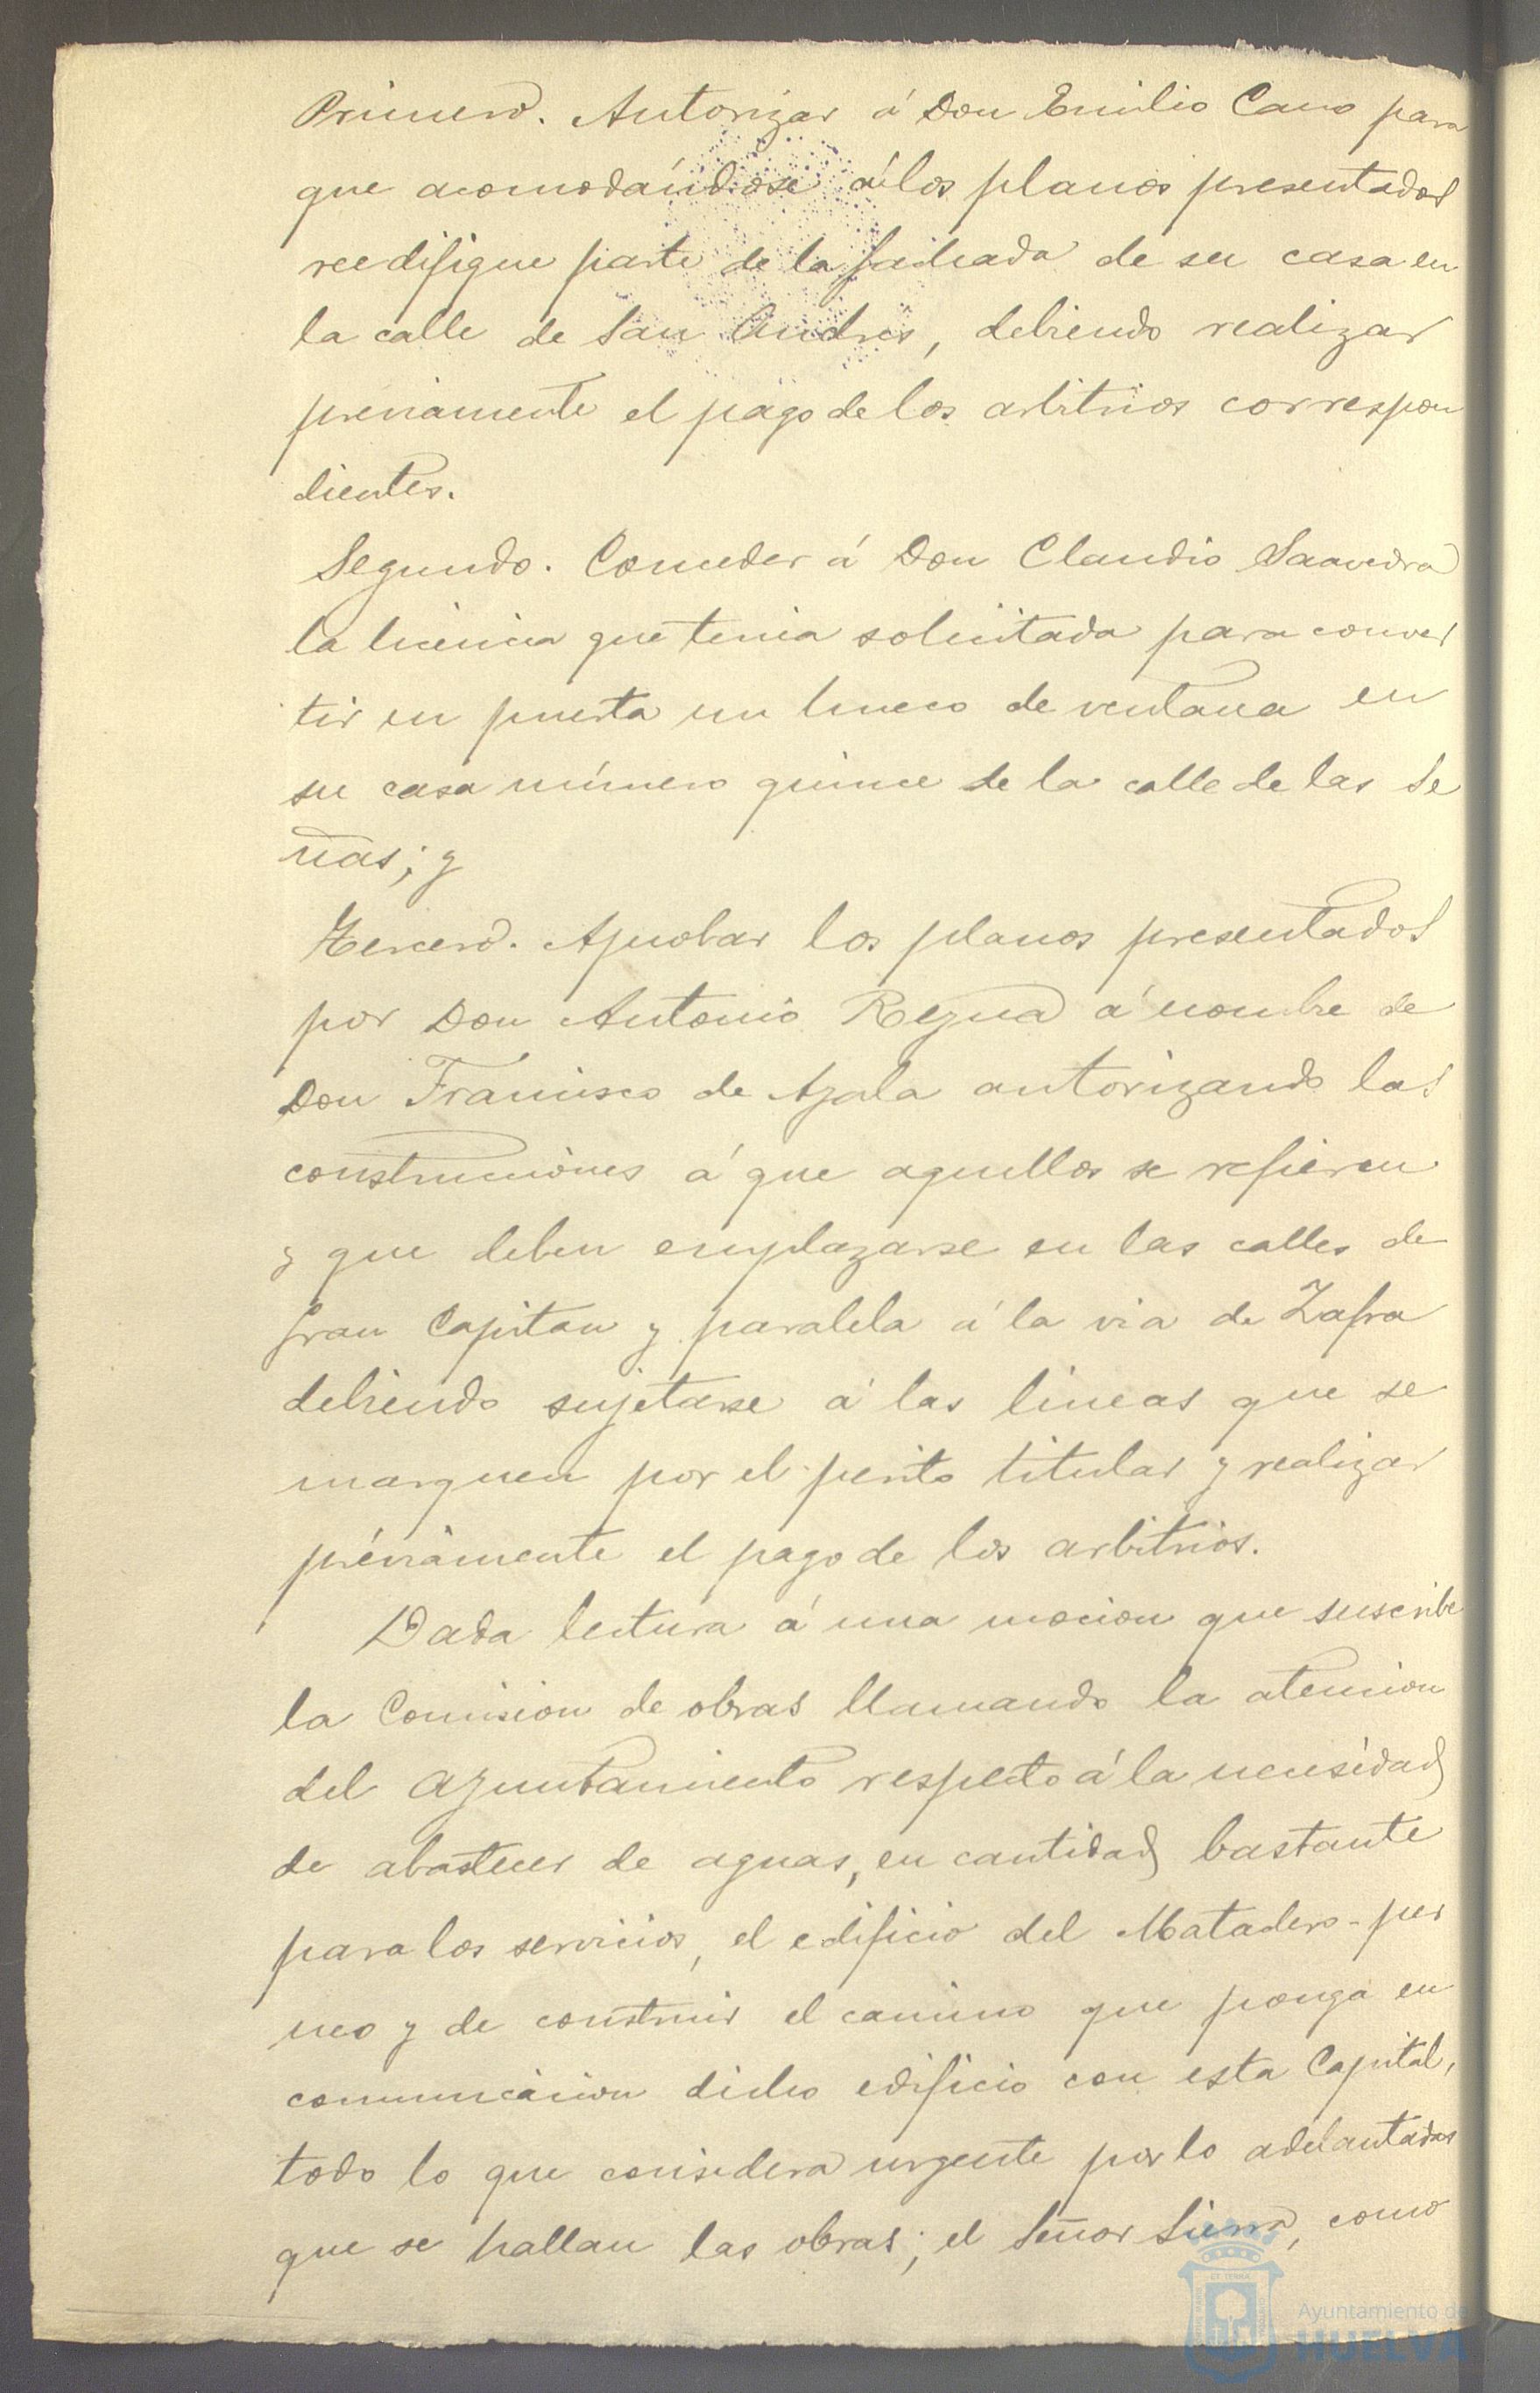 Primero. Autorizar á Don Emilio Cano para
que acomodándose á los planos presentados
reedifique parte de la fachada de su casa en
la calle de San Andres, debiendo realizar
previamente el pago de los arbitrios correspon
dientes.
Segundo. Conceder á Don Claudio Saavedra
la licencia que tenia solicitada para conver
tir en puerta un hueco de ventana en
su casa número quince de la calle de las Se
ñas; y
Tercero. Aprobar los planos presentados
por Don Antonio Regua á nombre de
Don Francisco de Ayala autorizando las
construcciones á que aquellos se refieren
y que deben emplazarse en las calles de
Gran Capitan y paralela á la via de Zafra
debiendo sujetarse á las lineas que se
marquen por el perito titular y realizar
préviamente el pago de los arbitrios.
Dada lectura á una mocion que suscribe
la Comision de obras llamando la atencion
del Ayuntamiento respecto á la necesidad
de abastecer de aguas, en cantidad bastante
para los servicios, el edificio del Matadero-per
neo y de construir el camino que ponga en
comunicacion dicho edificio con esta Capital,
todo lo que considera urgente por lo adelantadas
que se hallan las obras; el Señor Sierra, como
Ayuntamiento de
HUELVA